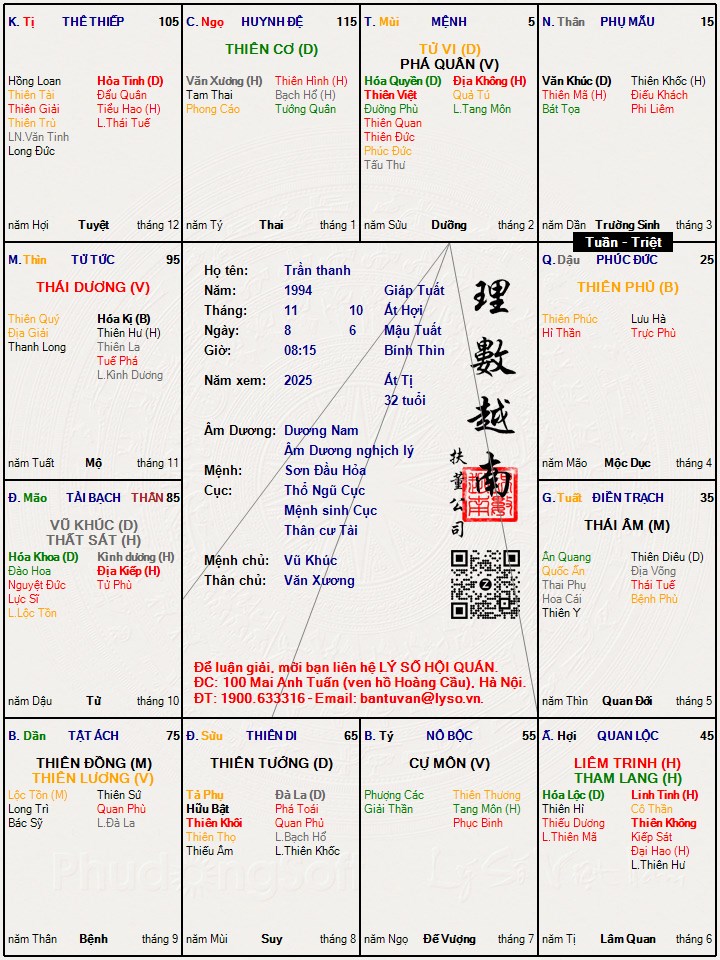 K. Tị THÊ THIẾP 105
Hồng Loan
Thiên Tài
Thiên Giải
Thiên Trù
LN.Văn Tinh
Long Đức
Hỏa Tinh (D)
Đẩu Quân
Tiểu Hao (H)
L.Thái Tuế
năm Hợi Tuyệt tháng 12
C. Ngọ HUYNH ĐỆ 115
THIÊN CƠ (D)
Văn Xương (H)
Tam Thai
Phong Cáo
Thiên Hình (H)
Bạch Hổ (H)
Tướng Quân
năm Tý Thai tháng 1
T. Mùi MỆNH 5
TỬ VI (D)
PHÁ QUÂN (V)
Hóa Quyền (D)
Thiên Việt
Đường Phù
Thiên Quan
Thiên Đức
Phúc Đức
Tấu Thư
Địa Không (H)
Quả Tú
L.Tang Môn
năm Sửu Dưỡng tháng 2
N. Thân PHỤ MẪU 15
Văn Khúc (D)
Thiên Mã (H)
Bát Tọa
Thiên Khốc (H)
Điếu Khách
Phi Liêm
năm Dần Trường Sinh tháng 3
Tuần - Triệt
M. Thìn TỬ TỨC 95
THÁI DƯƠNG (V)
Thiên Quý
Địa Giải
Thanh Long
Hóa Kị (B)
Thiên Hư (H)
Thiên La
Tuế Phá
L.Kình Dương
năm Tuất Mộ tháng 11
Họ tên: Trần thanh
Năm: 1994 Giáp Tuất
Tháng: 11 10 Ất Hợi
Ngày: 8 6 Mậu Tuất
Giờ: 08:15 Bính Thìn
Năm xem: 2025 Ất Tị
32 tuổi
Âm Dương: Dương Nam
Âm Dương nghịch lý
Mệnh: Sơn Đầu Hỏa
Cục: Thổ Ngũ Cục
Mệnh sinh Cục
Thân cư Tài
Mệnh chủ: Vũ Khúc
Thân chủ: Văn Xương
理數越南
扶董公司
Để luận giải, mời bạn liên hệ LÝ SỐ HỘI QUÁN.
ĐC: 100 Mai Anh Tuấn (ven hồ Hoàng Cầu), Hà Nội.
ĐT: 1900.633316 - Email: bantuvan@lyso.vn.
Q. Dậu PHÚC ĐỨC 25
THIÊN PHỦ (B)
Thiên Phúc
Hỉ Thần
Lưu Hà
Trực Phù
năm Mão Mộc Dục tháng 4
Đ. Mão TÀI BẠCH THÂN 85
VŨ KHÚC (D)
THẤT SÁT (H)
Hóa Khoa (D)
Đào Hoa
Nguyệt Đức
Lực Sĩ
L.Lộc Tồn
Kình dương (H)
Địa Kiếp (H)
Tử Phù
năm Dậu Tử tháng 10
G. Tuất ĐIỀN TRẠCH 35
THÁI ÂM (M)
Ân Quang
Quốc Ấn
Thai Phụ
Hoa Cái
Thiên Y
Thiên Diêu (D)
Địa Võng
Thái Tuế
Bệnh Phù
năm Thìn Quan Đới tháng 5
B. Dần TẬT ÁCH 75
THIÊN ĐỒNG (M)
THIÊN LƯƠNG (V)
Lộc Tồn (M)
Long Trì
Bác Sỹ
Thiên Sứ
Quan Phù
L.Đà La
năm Thân Bệnh tháng 9
Đ. Sửu THIÊN DI 65
THIÊN TƯỚNG (D)
Tả Phụ
Hữu Bật
Thiên Khôi
Thiên Thọ
Thiếu Âm
Đà La (D)
Phá Toái
Quan Phủ
L.Bạch Hổ
L.Thiên Khốc
năm Mùi Suy tháng 8
B. Tý NÔ BỘC 55
CỰ MÔN (V)
Phượng Các
Giải Thần
Thiên Thương
Tang Môn (H)
Phục Binh
năm Ngọ Đế Vượng tháng 7
Ấ. Hợi QUAN LỘC 45
LIÊM TRINH (H)
THAM LANG (H)
Hóa Lộc (D)
Thiên Hỉ
Thiếu Dương
L.Thiên Mã
Linh Tinh (H)
Cô Thần
Thiên Không
Kiếp Sát
Đại Hao (H)
L.Thiên Hư
năm Tị Lâm Quan tháng 6